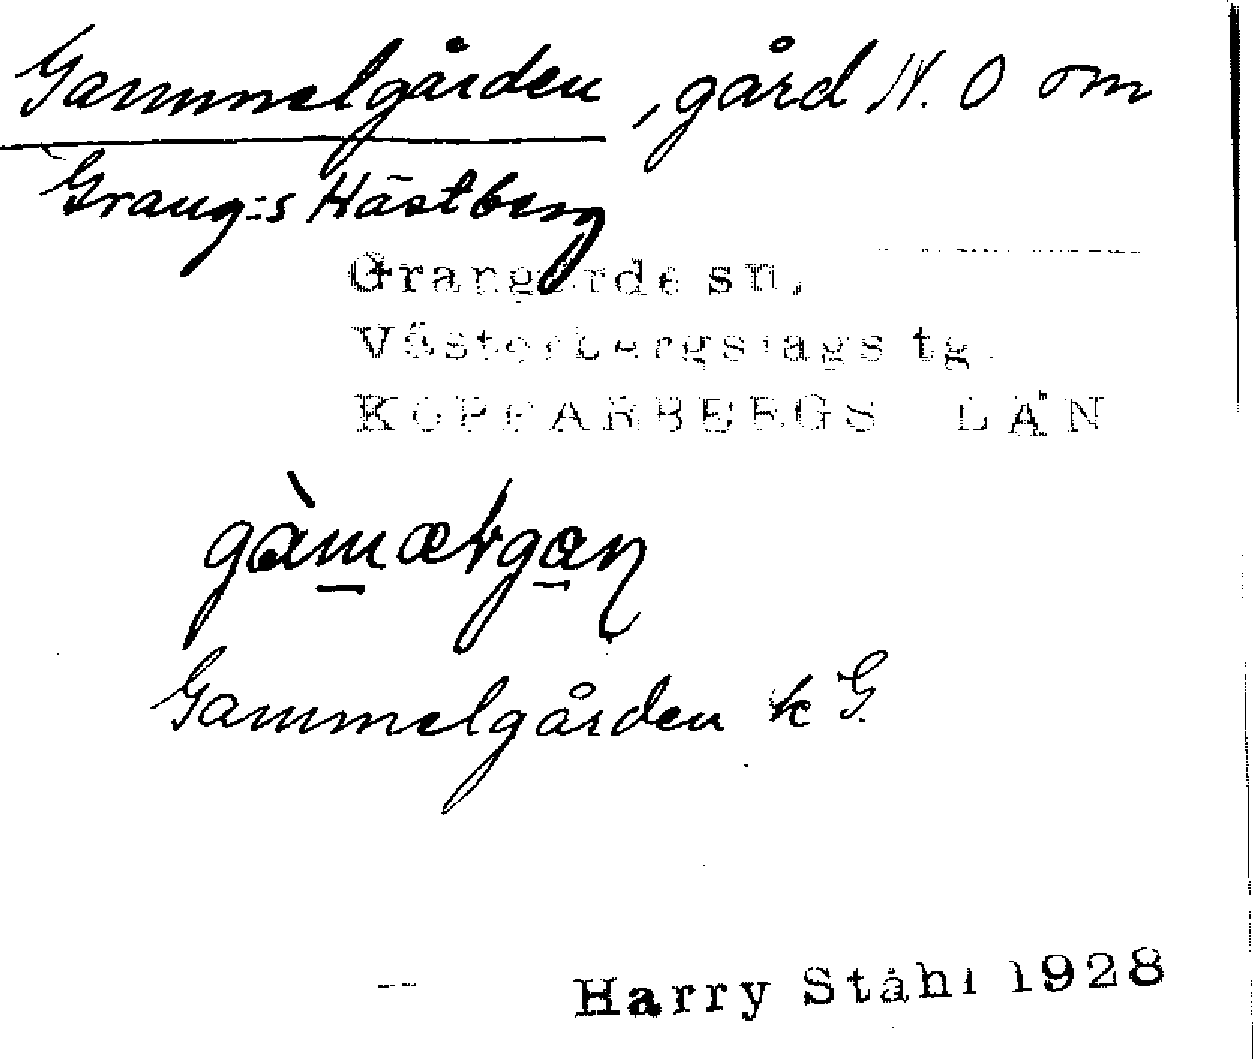 Gammelgården, gård N.O om
Grang:s Hästberg
Grangärde sn.
Västerbergslags tg.
KOPPARBERGS LÄN
Gammelgården k G.
Harry Ståhl 1928